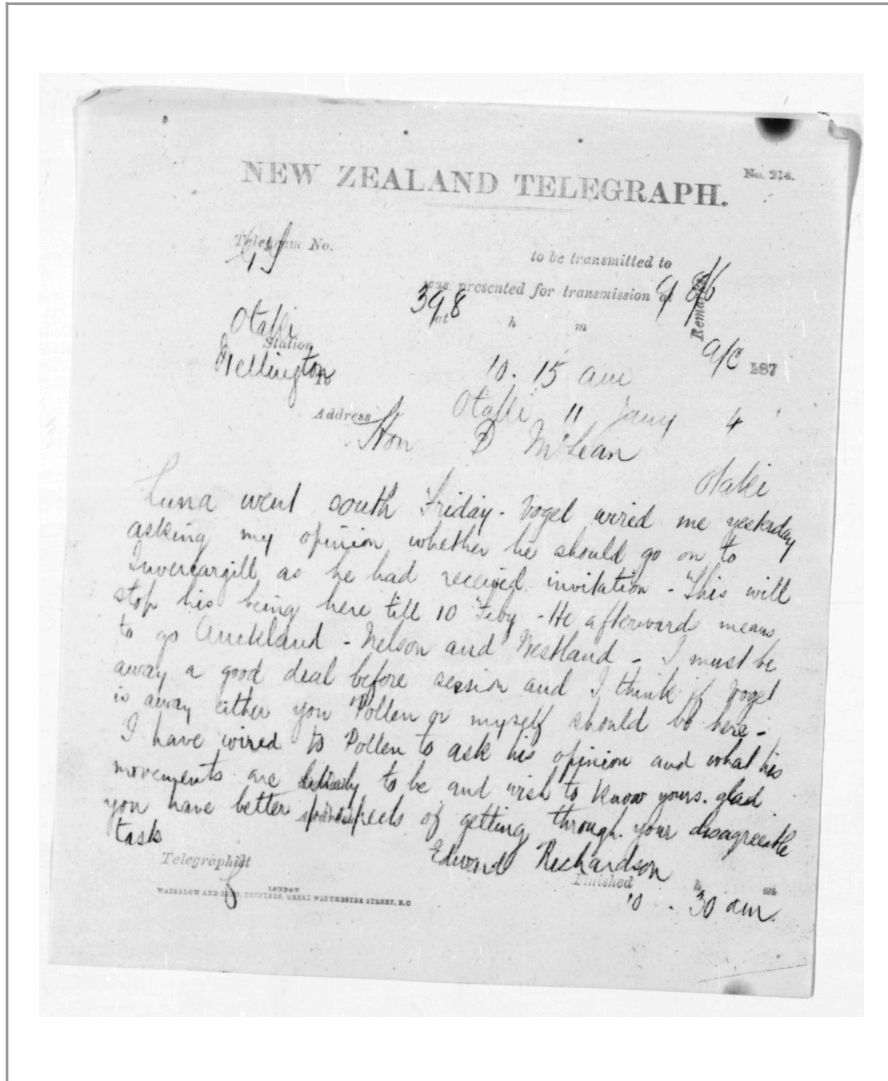 NEW ZEALAND TELEGRAPH.
No. 214.
Telegram No.
to be transmitted to
398
was presented for transmission at
Remarks
at h m
Otaki
Station
Wellington
To
10. 15 am
a/c 187
Otaki 11 Jany 4
Address
Hon D McLean
Otaki
Luna went south Friday - Vogel wired me yesterday
asking my opinion whether he should go on to
Invercargill as he had received invitation - This will
stop his being here till 10 Feby - He afterwards means
to go Auckland - Nelson and Westland - I must be
away a good deal before session and I think if Vogel
is away either you Pollen or myself should be here -
I have wired to Pollen to ask his opinion and what his
movements are to be and wish to know yours. glad
you have better of getting through your disagreeable
task
Edward Richardson
Telegraphist
Finished h m
10 - 30 am
LONDON
WATERLOW AND SONS, PRINTERS, GREAT WINCHESTER STREET, E.C